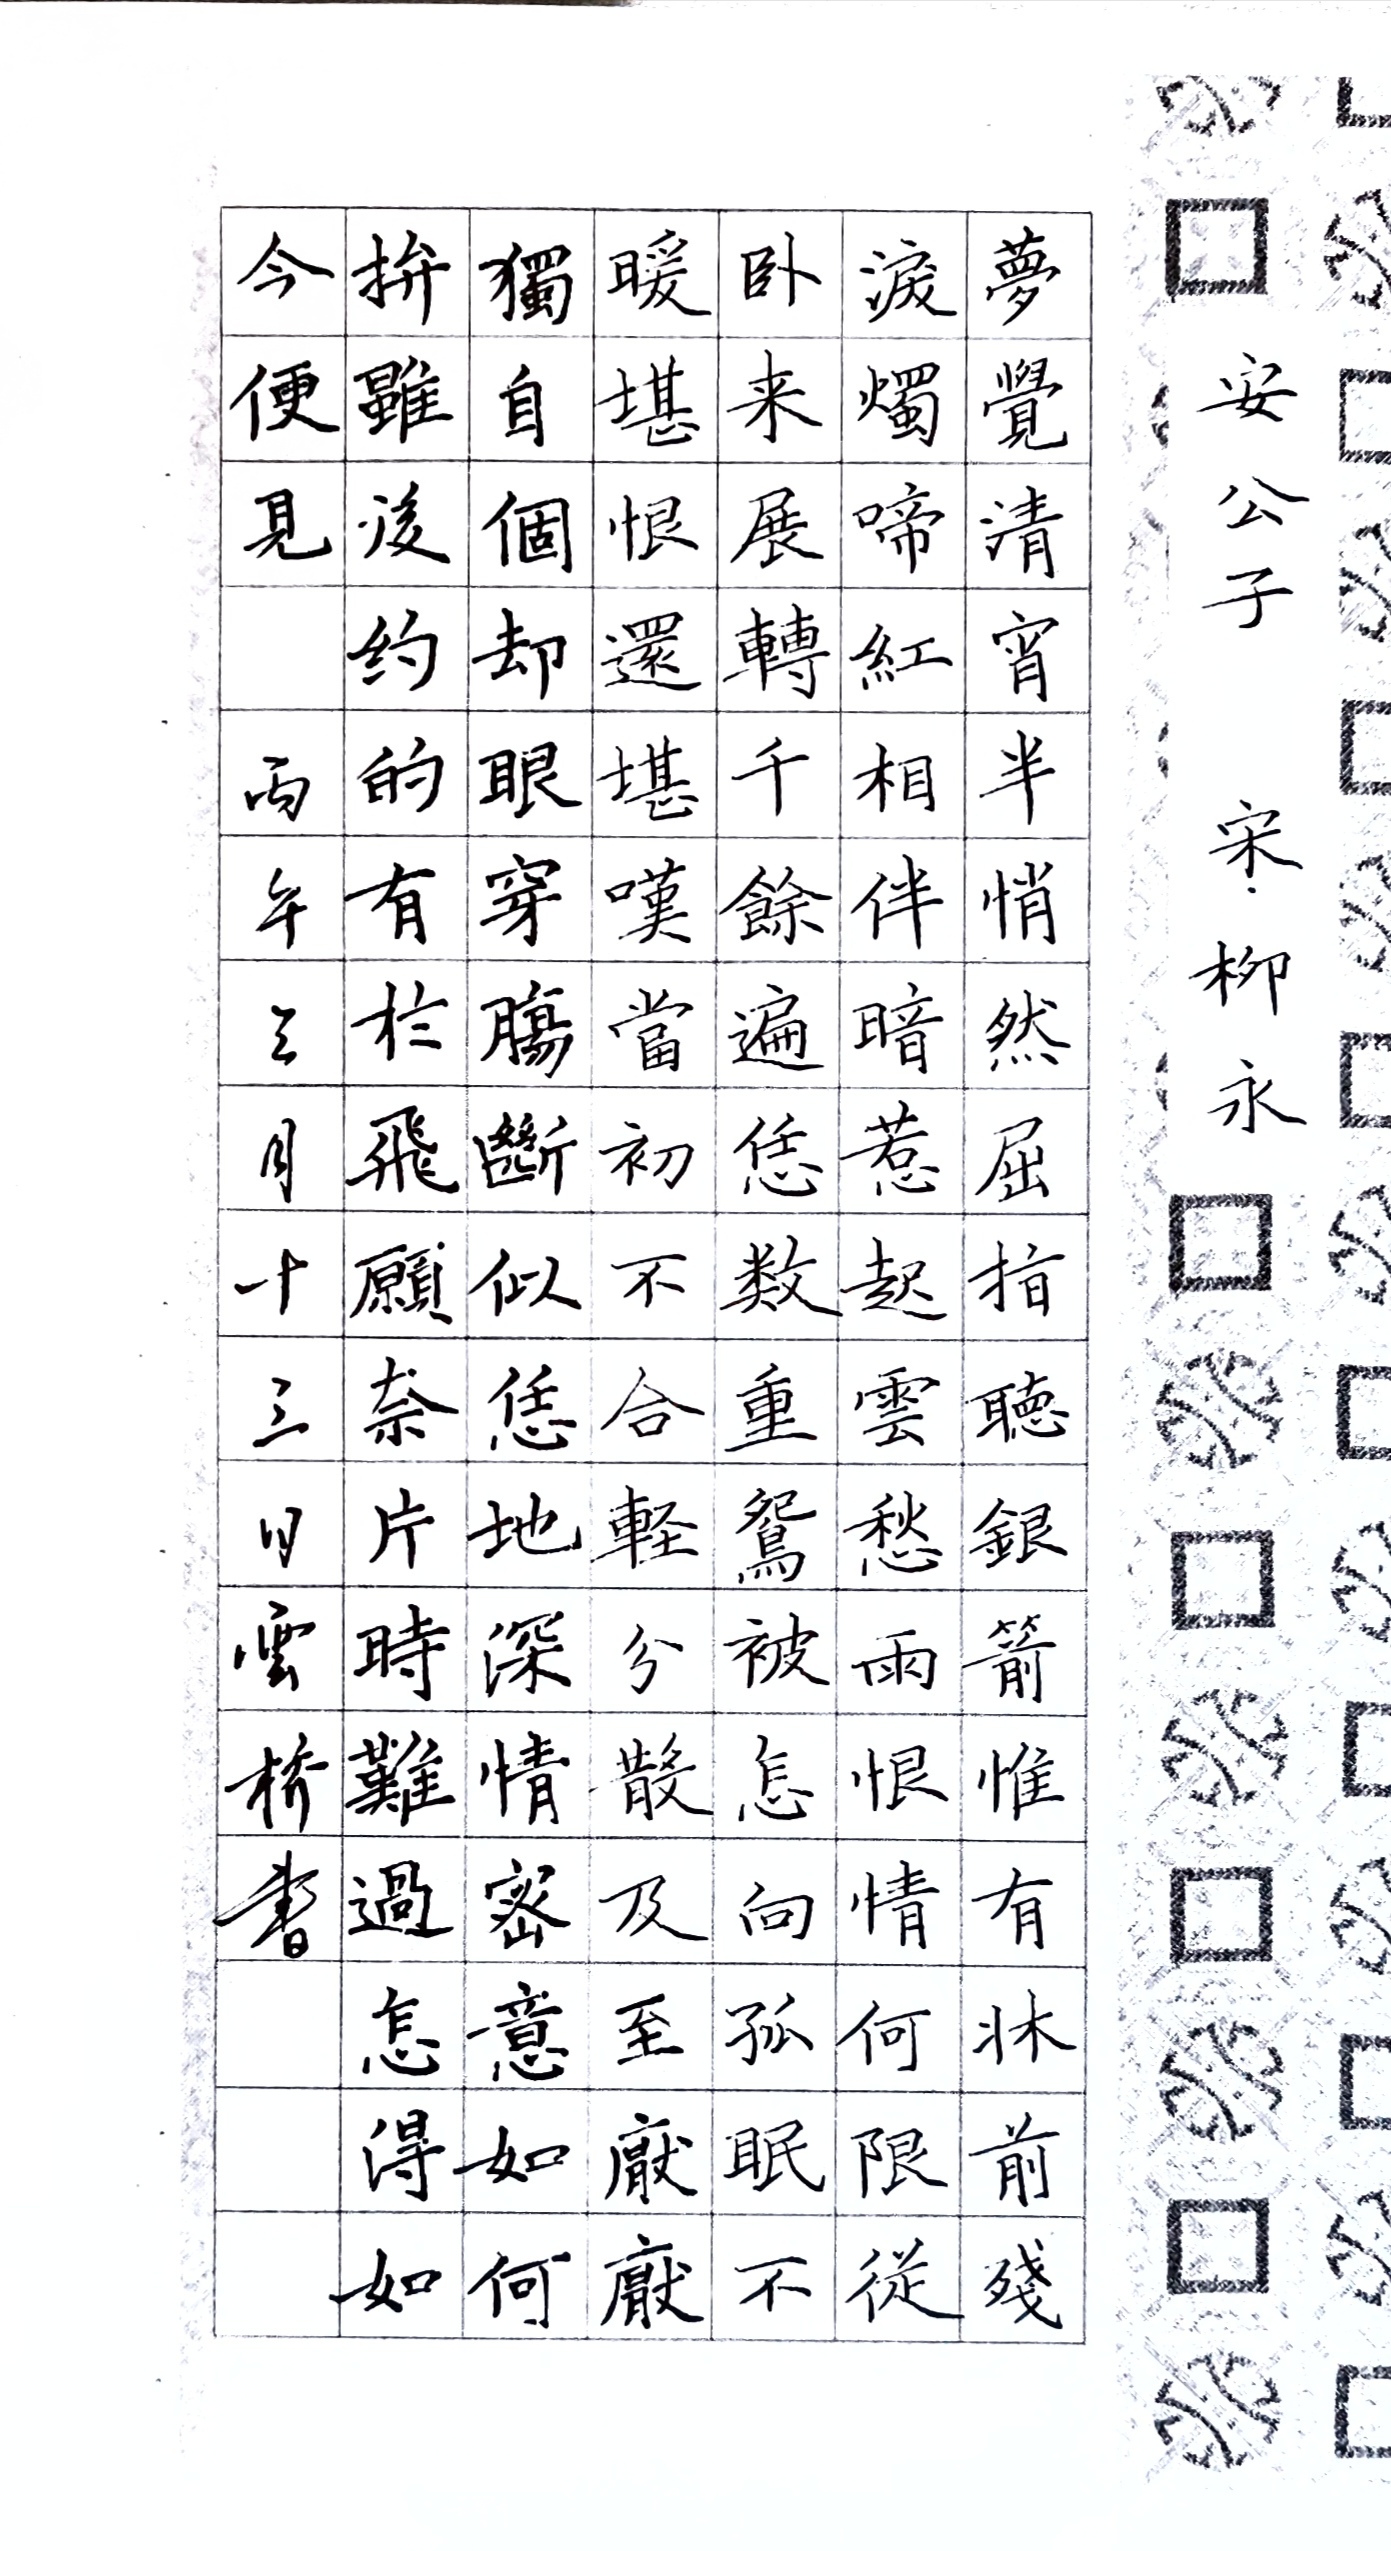 安公子 宋·柳永
夢覺清宵半悄然屈指聽銀箭惟有牀前殘
淚燭啼紅相伴暗惹起雲愁雨恨情何限從
卧来展轉千餘遍恁数重鴛被怎向孤眠不
暖堪恨還堪嘆當初不合軽分散及至厭厭
獨自個却眼穿腸斷似恁地深情密意如何
拚雖後约的有於飛願奈片時難過怎得如
今便見 丙午三月十三日雲橋書